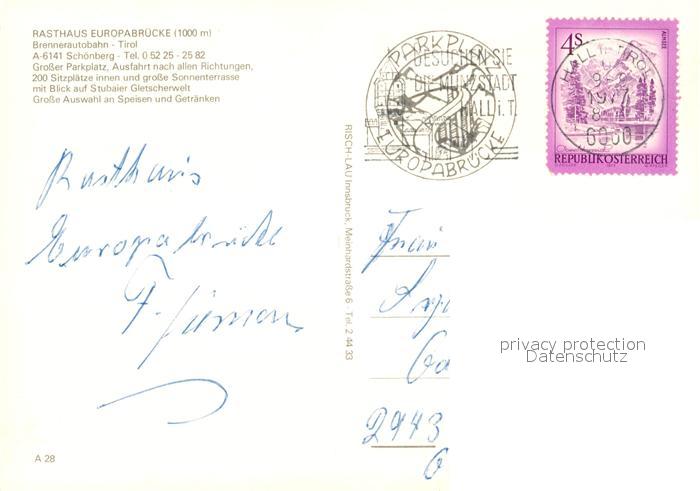 RASTHAUS EUROPABRÜCKE (1000 m)
Brennerautobahn - Tirol
A-6141 Schönberg - Tel. 0 52 25 - 25 82
Großer Parkplatz, Ausfahrt nach allen Richtungen,
200 Sitzplätze innen und große Sonnenterrasse
mit Blick auf Stubaier Gletscherwelt
Große Auswahl an Speisen und Getränken
Rasthaus
Europabrücke
F.
A 28
RISCH-LAU Innsbruck, Meinhardstraße 6 Tel. 2 44 33
PARKPL
EUROPABRÜCKE
BESUCHEN SIE
DIE MÜNZSTADT
HALL i. T.
4 S
ALMSEE
REPUBLIK ÖSTERREICH
HALL i. TIROL
1977
6060
Frau
2443
privacy protection
Datenschutz